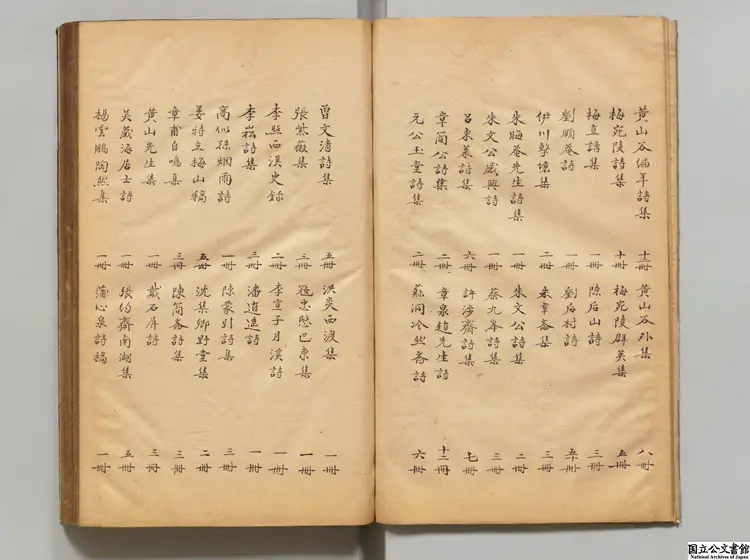 黄山谷編年詩集 十二冊 黄山谷外集 八冊
梅宛陵詩集 十冊 梅宛陵群英集 五冊
梅直講集 一冊 陳后山詩 三冊
劉順菴詩 一冊 劉后村詩 五十冊
伊川擊壤集 二冊 朱韋斋集 三冊
朱晦菴先生詩集 一冊 朱文公詩集 二冊
朱文公感興詩 一冊 蔡九峯詩集 三冊
呂東萊詩集 六冊 許涉齋詩集 七冊
章簡公詩集 二冊 章泉趙先生詩 十二冊
元公玉堂詩集 二冊 蘇泂冷然斋詩 六冊
曾文清詩集 五冊 洪炎西渡集 一冊
張紫薇集 三冊 寇忠愍巴東集 一冊
李照西漢史錄 二冊 李宣子月溪詩 一冊
李崧詩集 三冊 潘逍遥詩 一冊
高似孫烟雨詩 一冊 陳蒙引詩集 三冊
姜特立梅山稿 五冊 沈集鄉野堂集 二冊
章甫自鳴集 三冊 陳簡斎詩集 三冊
黄山先生集 一冊 戴石屏詩 三冊
吴葳海居士詩 一冊 張約齋南湖集 五冊
楊雲鵬陶然集 一冊 蒲心泉詩稿 一冊
国立公文書館
National Archives of Japan